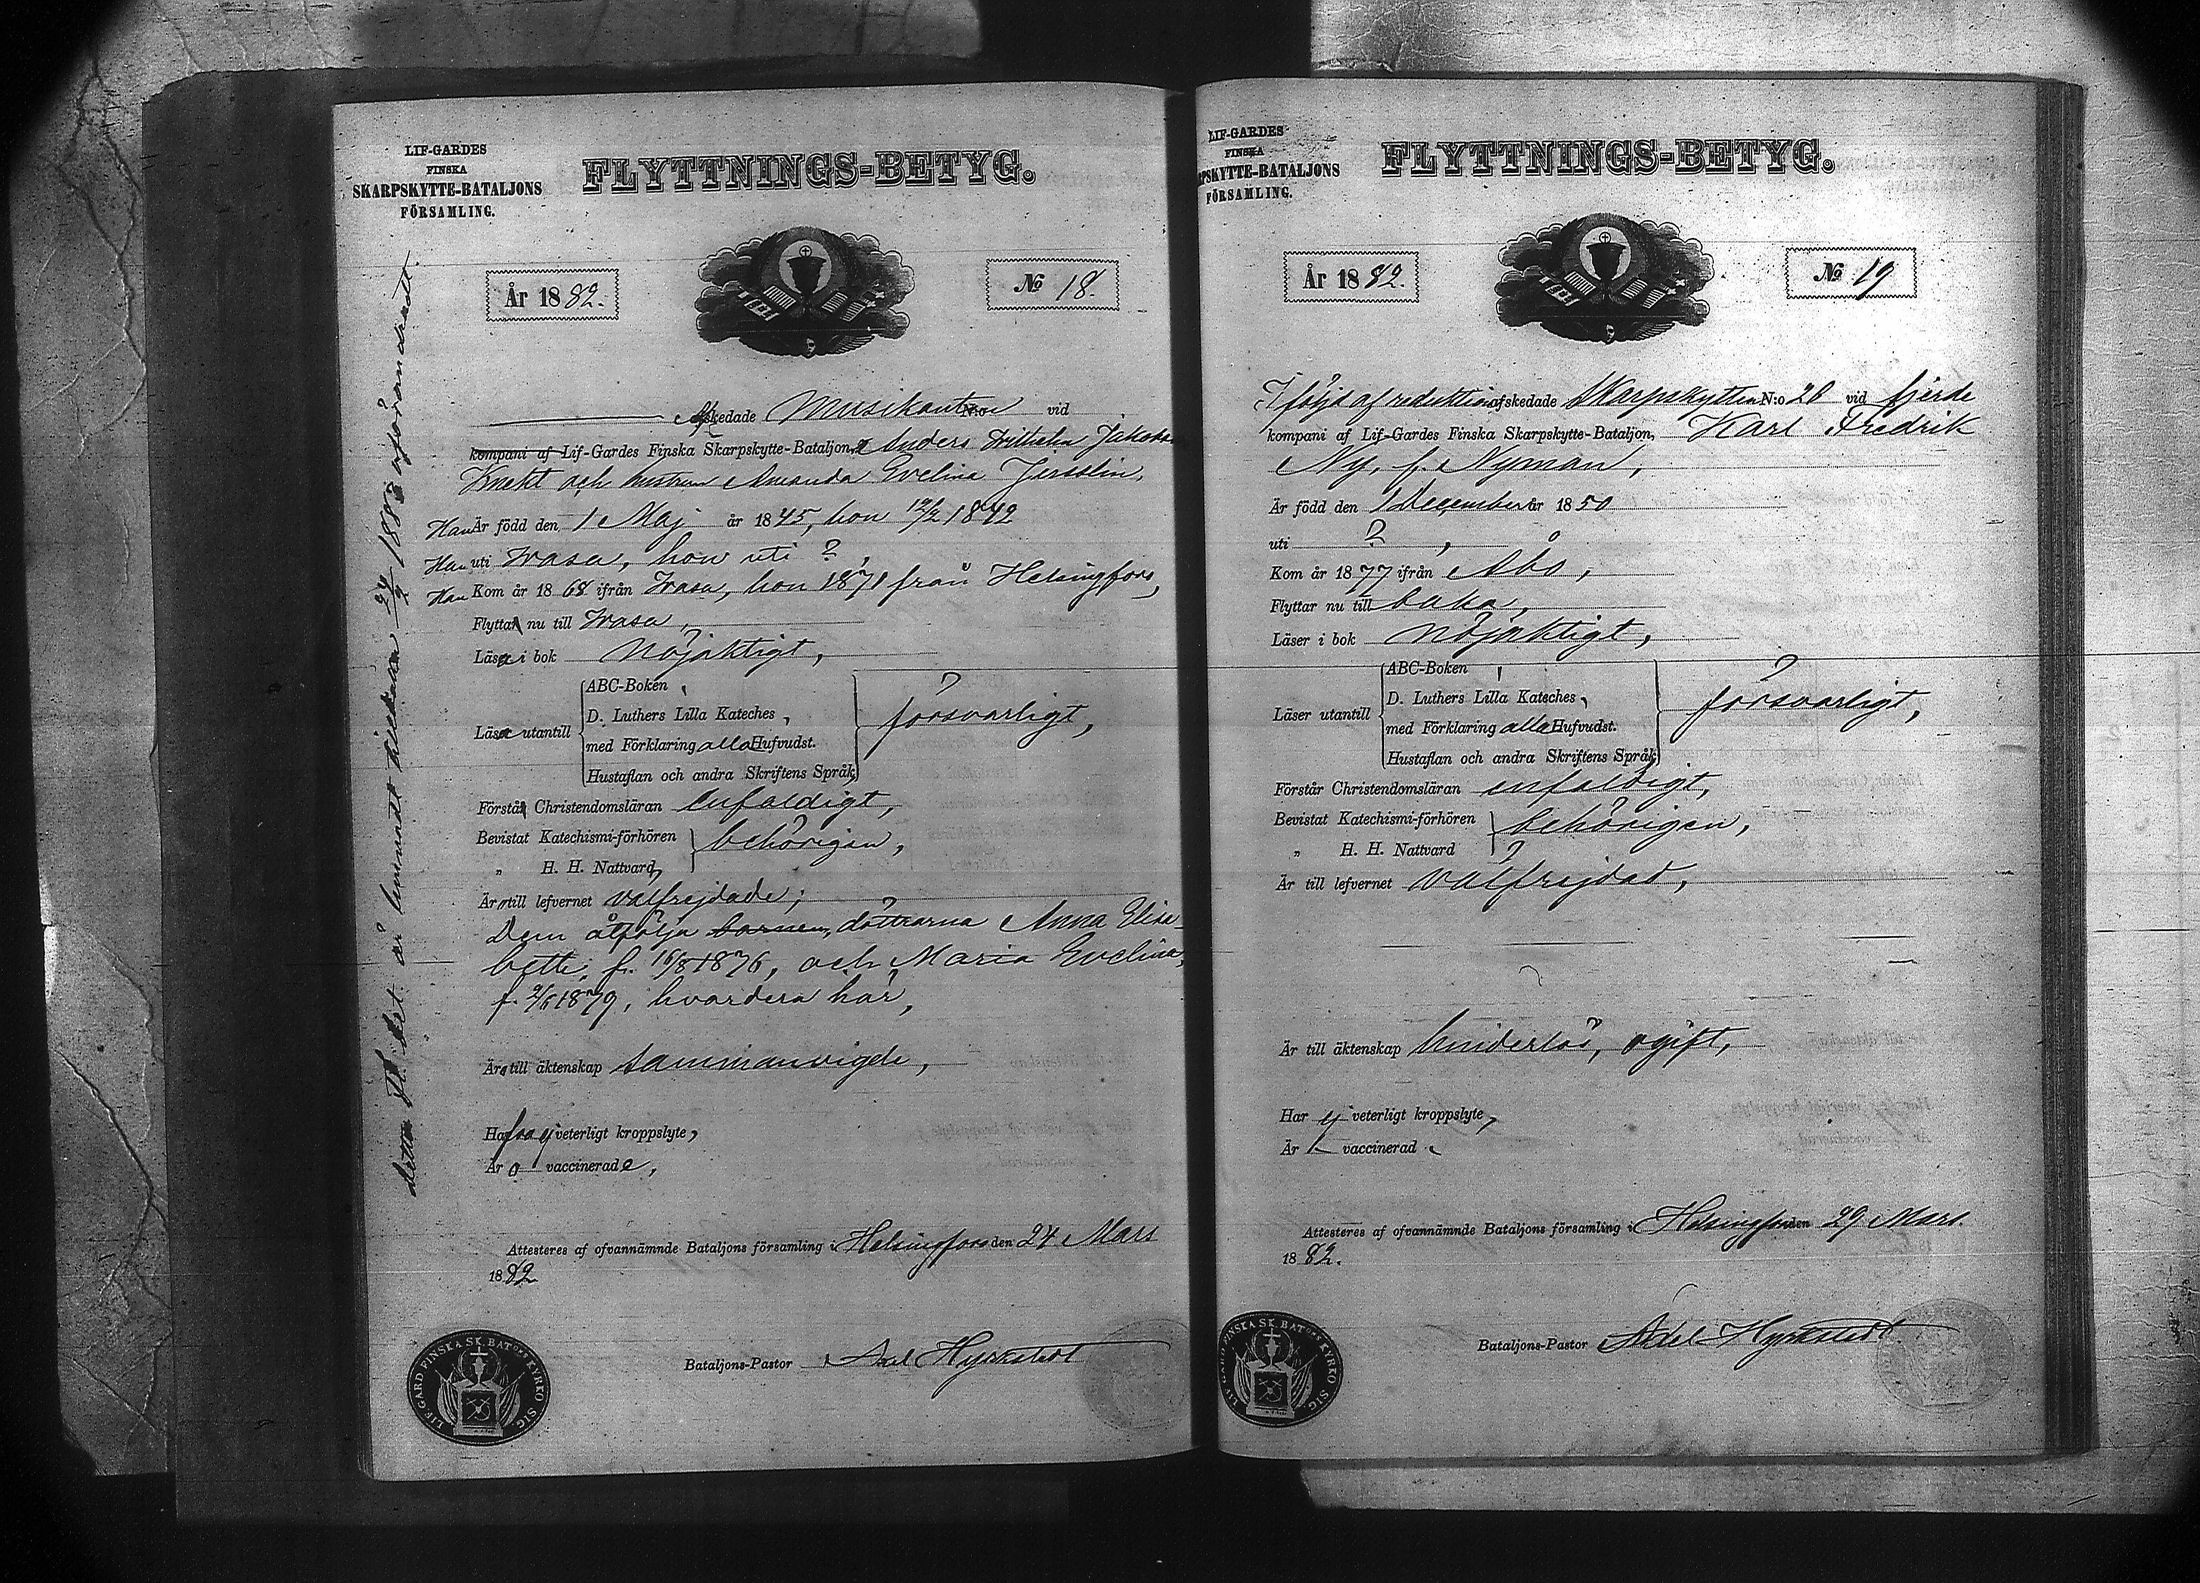 LIF-GARDES
FINSKA
SKARPSKYTTE-BATALJONS
FÖRSAMLING.
FLYTTNINGS-BETYG.
År 1882.
No 18.
Afskedade Musikanten N:o vid
kompani af Lif-Gardes Finska Skarpskytte-Bataljon, Anders Wilhelm Jakobs
Knekt och hustrun Amanda Evelina
Han Är född den 1 Maj år 1845, hon 12/2 1842
Han uti Wasa, hon uti ?,
Han Kom år 1868 ifrån Wasa, hon 1871 från Helsingfors,
Flytta nu till Wasa,
Läsa i bok nöjaktigt,
ABC-Boken,
D. Luthers Lilla Kateches,
Läsa utantill
med Förklaring alla Hufvudst.
försvarligt,
Hustaflan och andra Skriftens Språk,
Förstå Christendomsläran enfaldigt,
Bevistat Katechismi-förhören
behörigen,
„ H. H. Nattvard,
Äro till lefvernet välfrejdade;
Dem åtfölja barnen, döttrarna Anna Elisa-
beth, f. 16/8 1876, och Maria Evelina,
f. 2/6 1879, hvardera här,
Äro till äktenskap sammanvigde,
Hafva ej veterligt kroppslyte,
Äro vaccinerade,
Attesteres af ofvannämnde Bataljons församling i Helsingfors den 24 Mars
1882
Bataljons-Pastor Axel Hyrkstedt
LIF-GARD FINSKA SK. BATONS KYRKO SIG.
detta Fl. bet. är hemsändt tillbaka 24/2 1883 oförändradt.
LIF-GARDES
FINSKA
RPSKYTTE-BATALJONS
FÖRSAMLING.
FLYTTNINGS-BETYG.
År 1882.
No 19
I följd af reduktion afskedade Skarpskytten N:o 26 vid fjerde
kompani af Lif-Gardes Finska Skarpskytte-Bataljon, Karl Fredrik
Ny, f. Nyman,
Är född den 1 December år 1850
uti ?,
Kom år 1877 ifrån Åbo,
Flyttar nu till baka,
Läser i bok nöjaktigt,
ABC-Boken,
D. Luthers Lilla Kateches,
Läser utantill
med Förklaring alla Hufvudst.
försvarligt,
Hustaflan och andra Skriftens Språk
Förstår Christendomsläran enfaldigt,
Bevistat Katechismi-förhören
behörigen,
„ H. H. Nattvard
Är till lefvernet välfrejdad,
Är till äktenskap hinderlös, ogift,
Har ej veterligt kroppslyte,
Är vaccinerad.
Attesteres af ofvannämnde Bataljons församling i Helsingfors den 29 Mars.
1882.
Bataljons-Pastor Axel Hyrkstedt
LIF-GARD FINSKA SK. BATONS KYRKO SIG.